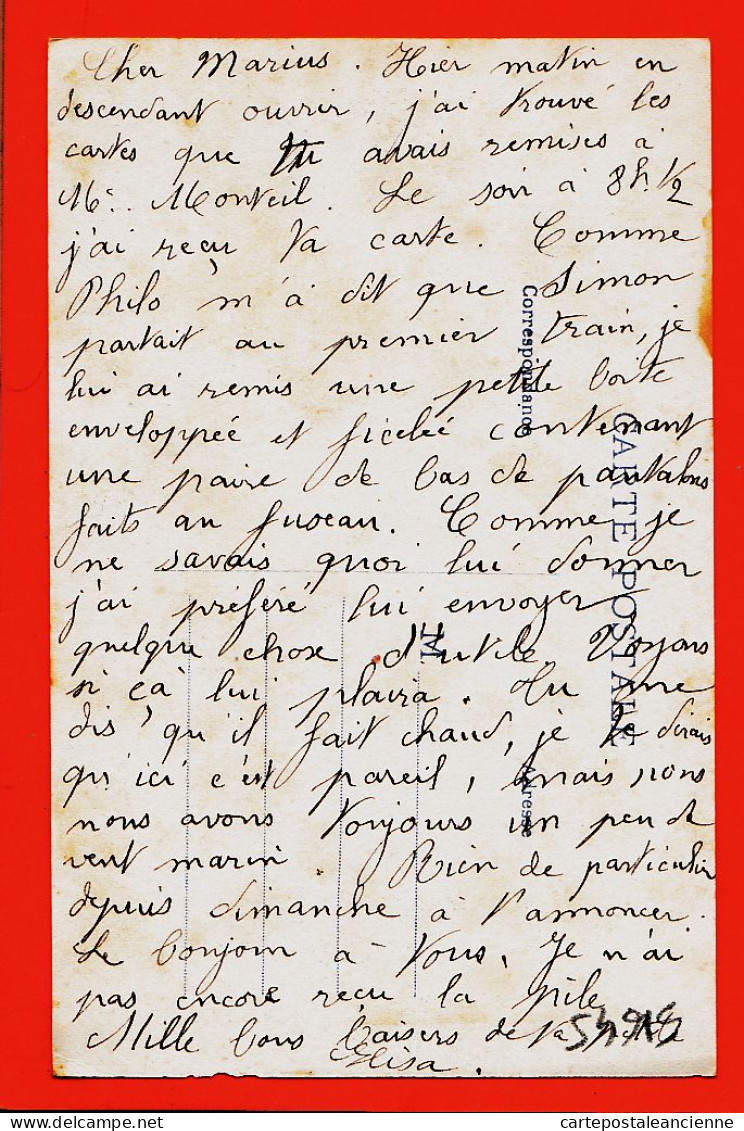 Cher Marius. Hier matin en
descendant ouvrir, j'ai trouvé les
cartes que tu avais remises à
Mr. Monteil. Le soir à 8h 1/2
j'ai reçu ta carte. Comme
Philo m'a dit que Simon
partait au premier train, je
lui ai remis une petite boite
enveloppée et ficelée contenant
une paire de bas de pantalons
faits au fuseau. Comme je
ne savais quoi lui donner
j'ai préféré lui envoyer
quelque chose d'utile Voyons
si ça lui plaira. Tu me
dis qu'il fait chaud, je te dirais
qu'ici c'est pareil, mais nous
nous avons toujours un peu de
vent marin. Rien de particulier
depuis dimanche à t'annoncer.
Le bonjour à Vous. Je n'ai
pas encore reçu la pile
Mille bons baisers de ta
Elisa.
CARTE POSTALE
Correspondance
Adresse
M
delcampe.net
cartepostaleancienne